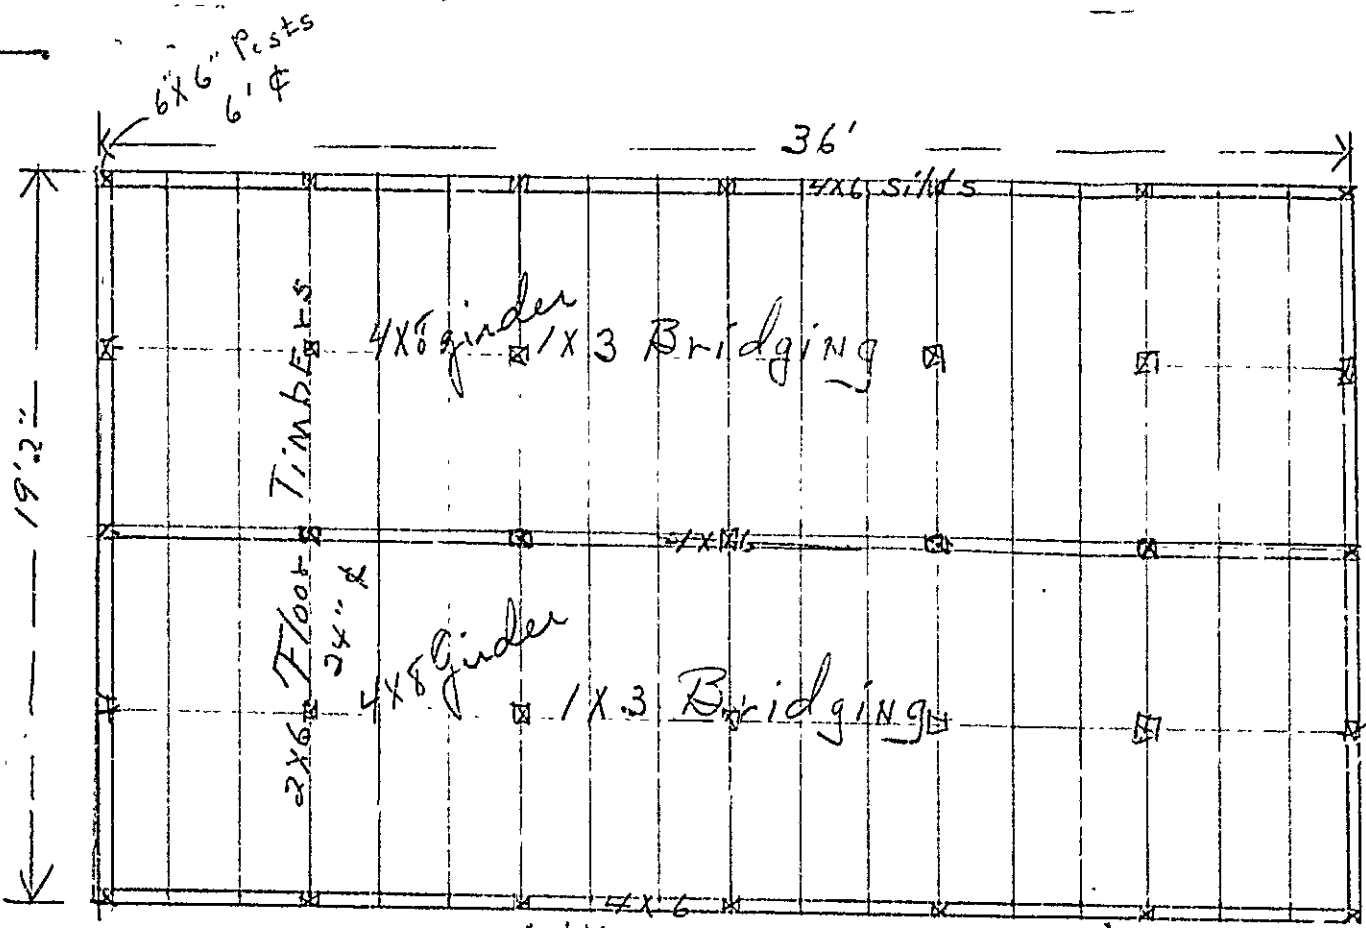 6"X6" Posts
6' ₵
36'
4X6 sills
19'-2"
2X6 Floor Timbers
24" ₵
4X8 girder
1X3 Bridging
4X6
4X8 Girder
1X3 Bridging
4X6